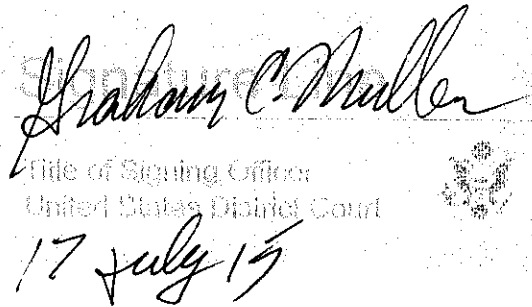 Signature
Graham C. Mullen
Title of Signing Officer
United States District Court
17 July 15